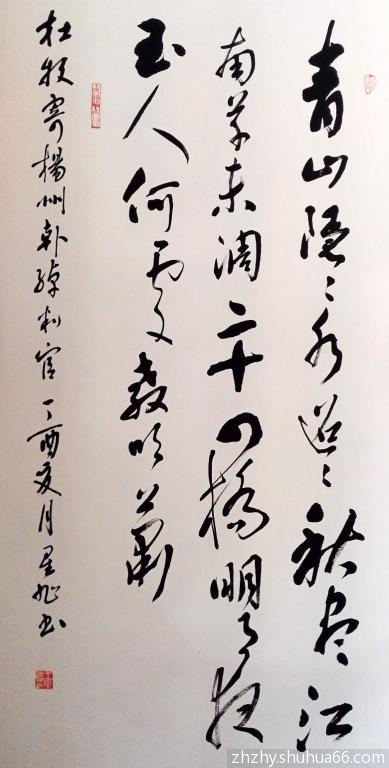 青山隐〻水迢〻秋尽江
南草未凋二十四橋明月夜
玉人何处教吹箫
杜牧寄揚州韩绰判官丁酉夏月星旭书
zhzhy.shuhua66.com